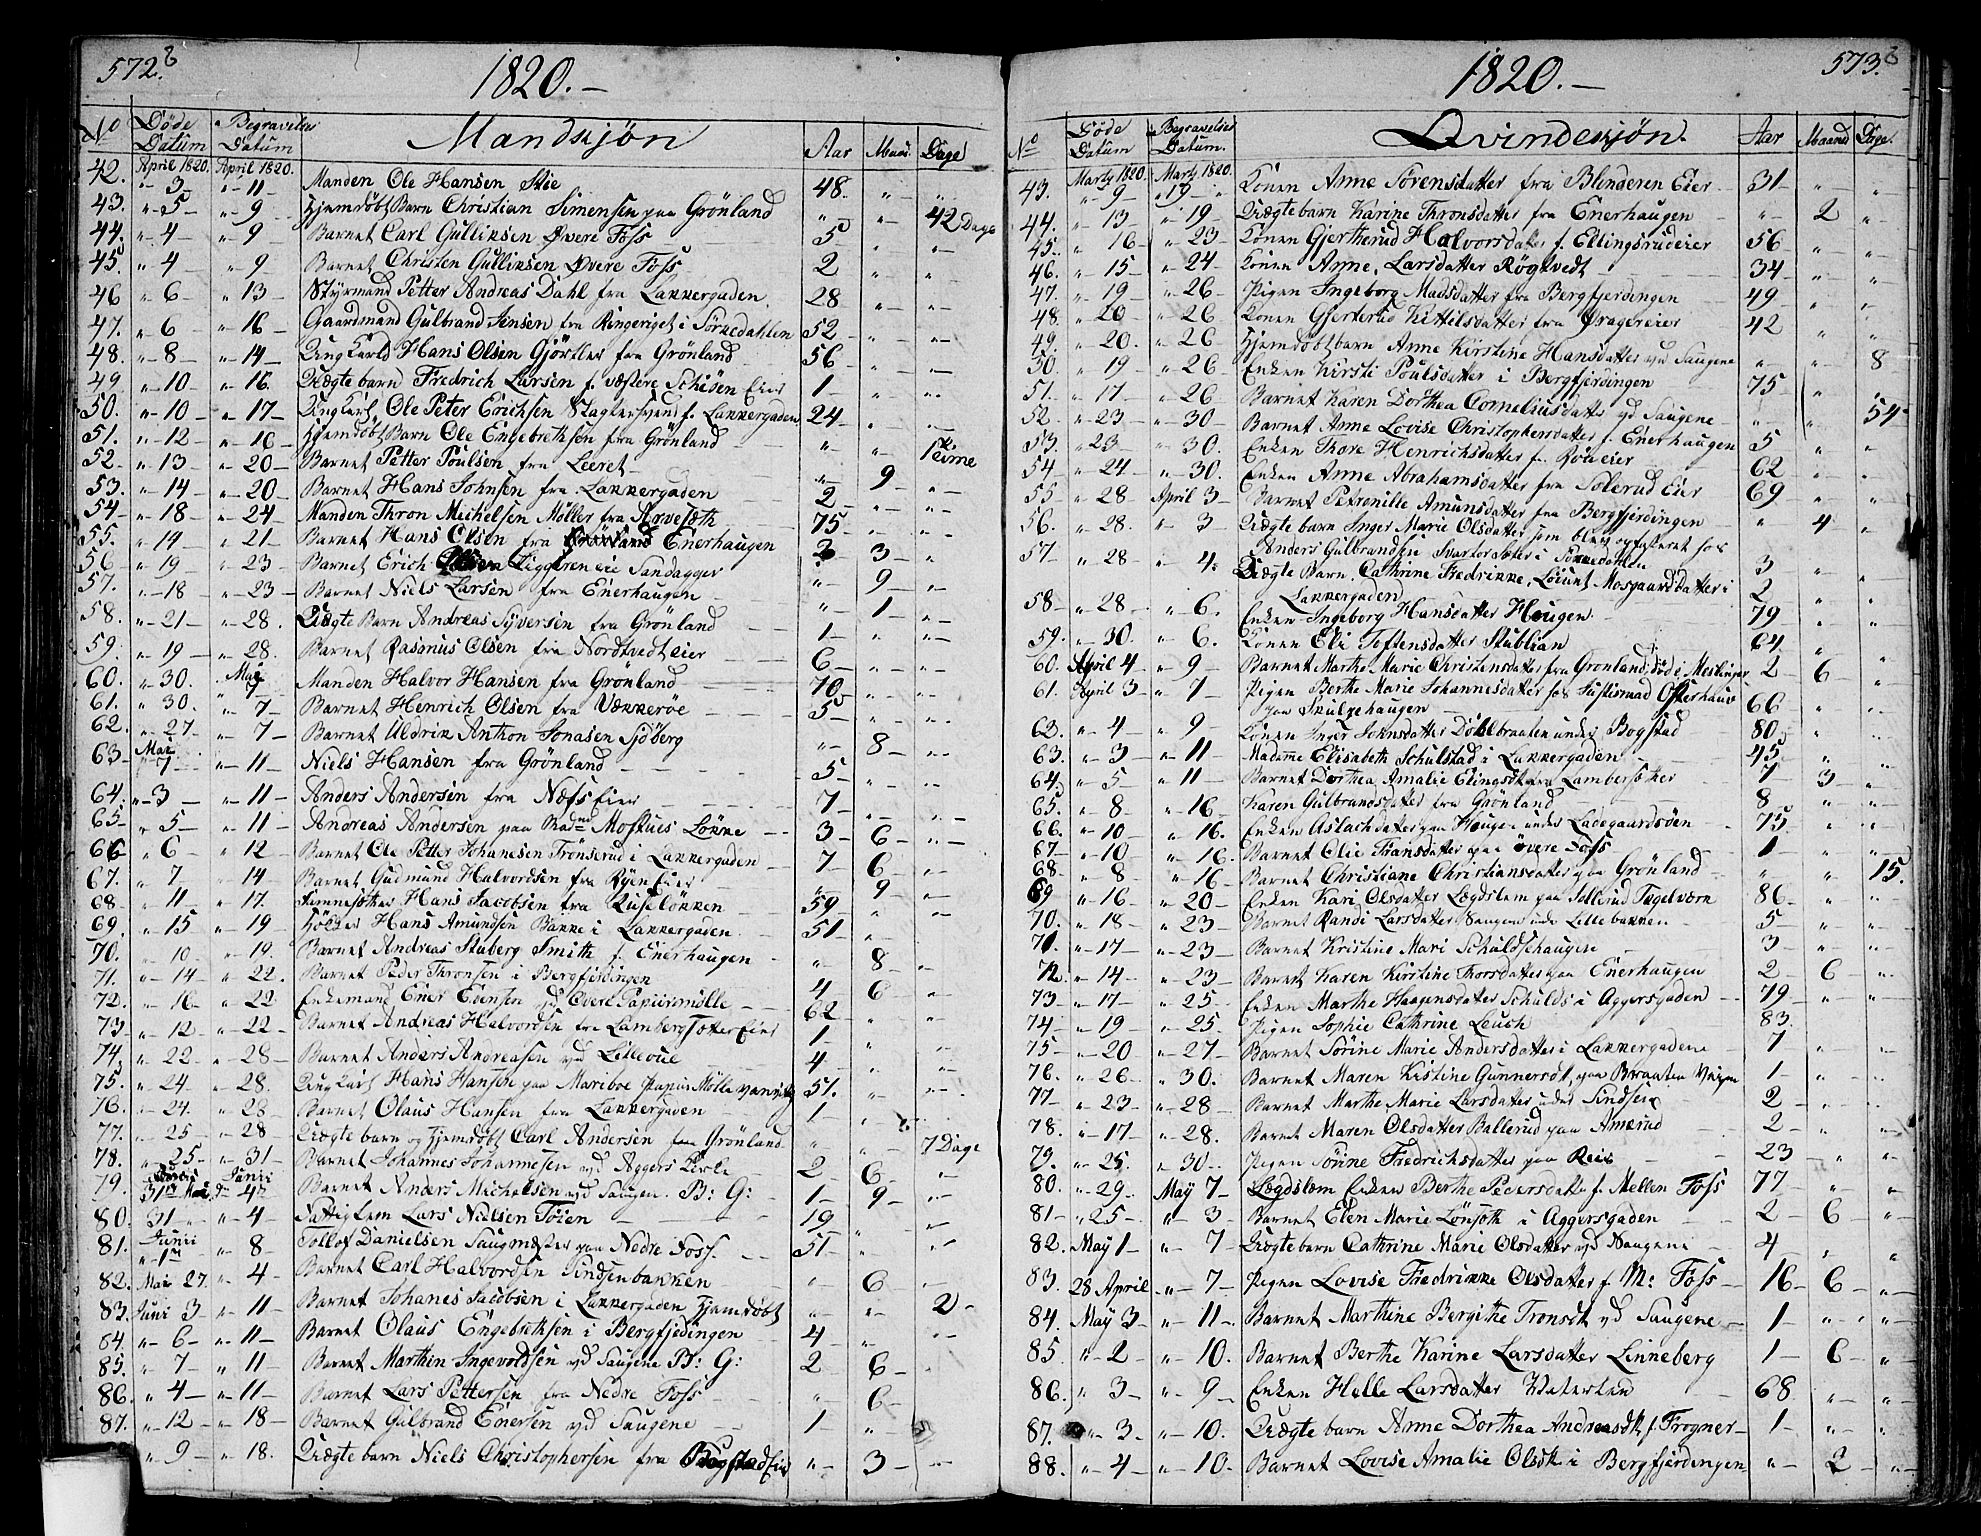 572.
1820.—
No Døde Datum Begravelses Datum Mandskjøn Aar Maan. Dage
April 1820. April 1820.
42. " 3 " 11 Manden Ole Hansen Stie 48 " "
43. " 5 " 9 Hjemdøbt Barn Christian Simensen paa Grönland " " 42 Dage
44. " 4 " 9 Barnet Carl Gullixsen Øvere Foss 5 " "
45 " 4 " 9 Barnet Christen Gullixsen Øvere Foss 2 " "
46 " 6 " 13 Styrmand Petter Andreas Dahl fra Lakkergaden 28 " "
47. " 6 " 16 Gaardmand Gulbrand Jensen fra Ringeriget i Sörkedahlen 52 " "
48. " 8 " 14 Ung Karl Hans Olsen Gjörtler fra Grönland 56 " "
49 " 10 " 16. Uægte barn Fredrich Larsen f. væstere Schiöen Eier 1 " "
50. " 10 " 17 Ung Karl Ole Peter Erichsen Slagtersvend f. Lakkergaden 24 " "
51. " 12 " 16 Hjemdöbt Barn Ole Engebretsen fra Grönland " " 1 Time
52. " 13 " 20 Barnet Petter Poulsen fra Leeret " 9 "
53. " 14 " 20 Barnet Hans Johnsen fra Lakkergaden 2 " "
54 " 18 " 24 Manden Thron Michelsen Möller fra 75 " "
55. " 14 " 21 Barnet Hans Olsen fra Enerhaugen 3 3 "
56 " 19 " 23 Barnet Erich " 9 "
57. " 18 " 23 Barnet Niels Larsen fra Enerhaugen " 1 "
58. " 21 " 28. Uægte Barn Andreas Syversen fra Grönland 1 " "
59. " 19 " 28. Barnet Rasmus Olsen fra Nordtvedt eier 6 " "
60. " 30. Mai 7 Manden Halvor Hansen fra Grönland 70 " "
61. " 30. " 7 Barnet Henrich Olsen fra Vækkeröe 5 " "
62. " 27 " 7 Barnet Uldrik Anthon Jonasen Sjöberg " 8 "
63 Mai 7 " 11 Niels Hansen fra Grönland 5 " "
64. " 3 " 11 Anders Andersen fra Næss Eier 7 " "
65 " 5 " 11 Andreas Andersen paa Mostues Lökke 3 6 "
66 " 6 " 12 Barnet Ole Petter Johanesen Trönserud i Lakkergaden 7 6 "
67. " 7 " 14 Barnet Gudmund Halvordsen fra Ryen Eier " 9 "
68 " 11 " 17. Hans Jacobsen fra Ruselökken 59 " "
69. " 15 " 19 Hans Amundsen Bakke i Lakkergaden 51 " "
70. " 10 " 19. Barnet Andreas Stuberg Smith f. Enerhaugen " 8 "
71. " 14 " 22. Barnet Peder Thronsen i Bergfjerdingen 4 6 "
72. " 16 " 22 Enkemand Ener Evensen vd Overe Papirmölle 62 " "
73 " 12 " 22 Barnet Andreas Halvordsen fra Lamberg Sæter Eier 1 " "
74. " 22 " 28 Barnet Anders Andreasen vd Lilleoul 4 " "
75. " 24 " 28. Ung Karl Hans Hansen paa Mariboe Papir Mölle 51. " "
76. " 24. " 28 Barnet Olaus Hansen fra Lakkergaden 1 " "
77. " 25 " 28 Uægte barn og Hjemdöbt Carl Andersen fra Grönland " " 7 Dage
78. " 25 " 31 Barnet Johannes Johannesen vd Aggers Kirke 2 6 "
79. 31te Mai Junii 4 Barnet Anders Michelsen vd Saugen. B: G: 1 9 "
80. 31 " 4 Fattiglem Lars Nielsen Töien 19 " "
81. Junii 1 " 8 Tollof Danielsen Saugmester paa Nedre Foss. 51 " "
82. Mai 27. " 4 Barnet Carl Halvordsen Sindsenbakken " 6 "
83. Juni 3 " 11 Barnet Johanes Jacobsen i Lakkergaden Hjemdöbt " " 2
84. " 6 " 11 Barnet Olaus Engebretsen i Bergfjedingen 4 " "
85. " 7 " 11 Barnet Marthin Ingevoldsen vd Saugene B: G: 2 6 "
86. " 4 " 11 Barnet Lars Pettersen fra Nedre Foss " 6 "
87. " 12 " 18 Barnet Gulbrand Enersen vd Saugene 1 " "
" 9 " 18. Uægte barn Niels Christophersen fra Bogstad Eier " 3 "
573.
1820.—
No Døde Datum Begravelses Datum. Qvindeskjøn. Aar Maaned Dage
Marty 1820. Marty 1820.
43. " 9 " 19 Konen Anne Sörensdatter fra Blinderen Eier 31 " "
44. " 13 " 19 Uægtebarn Karine Thronsdatter fra Enerhaugen " 2 "
45. " 16 " 23 Konen Gjertherud Halvorsdatter f. Ellingsrudeier 56 " "
46. " 15 " 24 Konen Anne Larsdatter Røgtvedt 34 " "
47. " 19 " 26 Pigen Ingeborg Madsdatter fra Bergfjerdingen 49 " "
48. " 20 " 26 Konen Gjertrud Kittelsdatter fra 42 " "
49. " 20. " 26 Hjemdöbtbarn Anne Kirstine Hansdatter vd Saugene " " 8
50. " 19 " 26 Enken Kirsti Poulsdatter i Bergfjerdingen 75 " "
51. " 17 " 26 Barnet Karen Dorthea Corneliusdatter vd Saugene " " 54
52. " 23 " 30 Barnet Anne Lovise Christophersdatter f. Enerhaugen 5 " "
53. " 23 " 30. Enken Thore Henrichsdatter f. 62 " "
54 " 24 " 30. Enken Anne Abrahamsdatter fra Solerud Eier 69 " "
55 " 28 April 3 Barnet Petronille Amundsdatter fra Bergfjerdingen " 4 "
56. " 28. " 3 Uægte barn Inger Marie Olsdatter som blev opfostret hos
Anders Gulbrandsen i Sörkedahlen 3 " "
57. " 28 " 4. Uægte Barn. Cathrine Fredrikke, Mosgaardsdatter i
Lakkergaden 2 " "
58 " 28 " 6. Enken Ingeborg Hansdatter Hougen 79 " "
59. " 30. " 6. Konen Eli Toftensdatter Stublian 64 " "
60. April 4 " 9 Barnet Marthe Marie Christensdatter fra Grönland, död i 2 6 "
61. April 3 " 7 Pigen Berthe Marie Johannesdatter hos Justitsraad Osterhaus
paa Skulzehaugen 66 " "
62. " 4 " 9 Konen Inger Johnsdatter under Bogstad 80 " "
63. " 3 " 11 Madame Elisabeth Schulstad i Lakkergaden 45 " "
64. " 5 " 11 Barnet Dorthea Amalie fra Lambersöter 7 3 "
65. " 8 " 16 Karen Gulbrandsdatter fra Grönland 8 " "
66. " 10 " 16. Enken Aslachdatter paa Hougen under Ladegaardsöen 75 " "
67 " 10 " 16. Barnet Olie Fransdatter paa övere Foss 1 " "
68 " 8 " 16 Barnet Christiane Christiansdatter paa Grönland " " 15.
69 " 16 " 20 Enken Kari Olsdatter Lægdslem paa Sollerud Tegelværn 86 " "
70. " 18 " 23 Barnet Randi Larsdatter Saugen under Lillebakken 5 " "
71. " 17 " 23 Barnet Kristine Mari Schuldsehaugen 3 " "
72. " 14 " 23 Barnet Karen Kirstine Thorsdatter paa Enerhaugen 2 6 "
73 " 17 " 25 Enken Marthe Haagensdatter Schulds i Aggersgaden 79 " "
74 " 19 " 25. Pigen Sophie Cathrine Leuch 83. " "
75 " 20 " 27 Barnet Sörine Marie Andersdatter i Lakkergadene 7 " "
76. " 26 " 30. Barnet Maren Kistine Gunnersdt. paa Braaten 1 " "
77 " 23 " 28 Barnet Marthe Marie Larsdatter under Sindsen 2 " "
78. " 17 " 28. Barnet Maren Olsdatter Ballerud paa Amerud 2 " "
79. " 25. " 30. Pigen Sönne Fredrichsdatter paa Reis 23 " "
80. " 29 May 7 Lægdslem Enken Berthe Pedersdatr f. Mellem Foss 77 " "
81 " 25 " 3 Barnet Elen Marie Lönsöth i Aggersgaden 2 6 "
82. May 1 " 7 Uægte barn Cathrine Marie Olsdatter vd Saugene 4 " "
83. 28 April " 7 Pigen Lovise Fredrikke Olsdatter f. M: Foss 16 6 "
84. May 3 " 11 Barnet Marthine Bergithe Tronsdt vd Saugene 1 " "
85. " 2 " 10. Barnet Berthe Karine Larsdatter Linneberg 1 6 "
86. " 3 " 9 Enken Helle Larsdatter 68. " "
87. " 3 " 10. Uægte barn Anne Dorthea Andreasdt f. Frogner 1 " "
88. " 4 " 10. Barnet Lovise Amalie Olsdt i Bergfjerdingen " 2 "